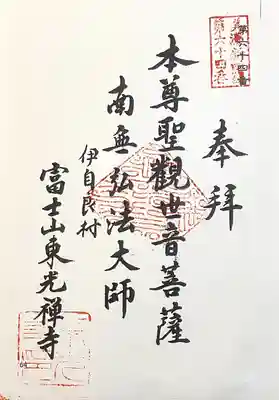 第六十四番
奉拜
本尊聖觀世音菩薩
南無弘法大師
伊自良村
富士山東光禅寺